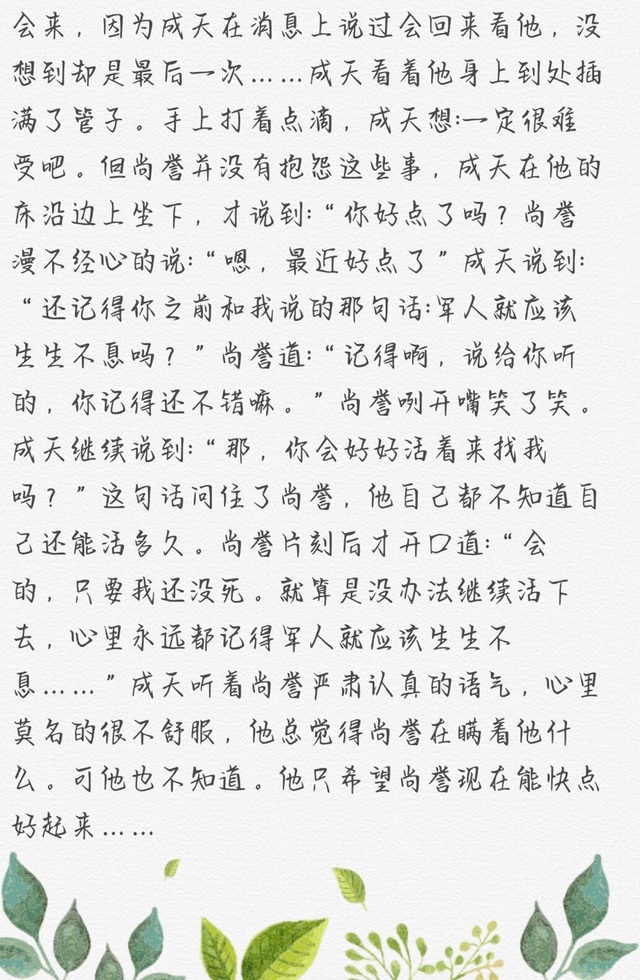 会来，因为成天在消息上说过会回来看他，没
想到却是最后一次……成天看着他身上到处插
满了管子。手上打着点滴，成天想:一定很难
受吧。但尚誉并没有抱怨这些事，成天在他的
床沿边上坐下，才说到:“你好点了吗？尚誉
漫不经心的说:“嗯，最近好点了”成天说到:
“还记得你之前和我说的那句话:军人就应该
生生不息吗？”尚誉道:“记得啊，说给你听
的，你记得还不错嘛。”尚誉咧开嘴笑了笑。
成天继续说到:“那，你会好好活着来找我
吗？”这句话问住了尚誉，他自己都不知道自
己还能活多久。尚誉片刻后才开口道:“会
的，只要我还没死。就算是没办法继续活下
去，心里永远都记得军人就应该生生不
息……”成天听着尚誉严肃认真的语气，心里
莫名的很不舒服，他总觉得尚誉在瞒着他什
么。可他也不知道。他只希望尚誉现在能快点
好起来……